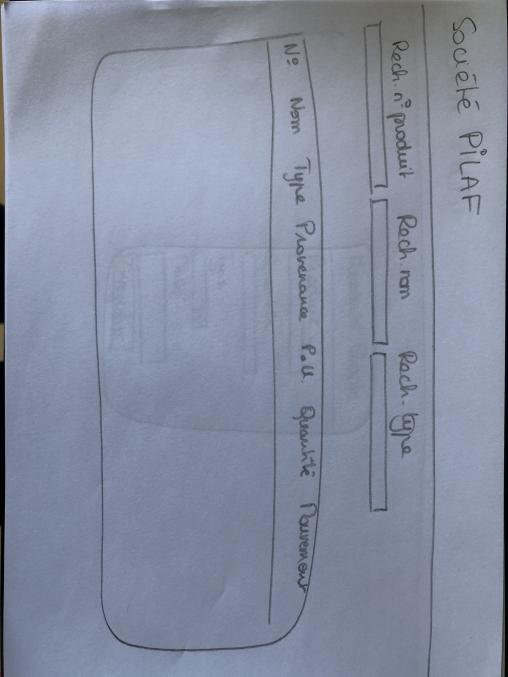 Société PILAF
Rech. n° produit Rech. nom Rech. type
N° Nom Type Provenance P.U. Quantité Mouvement